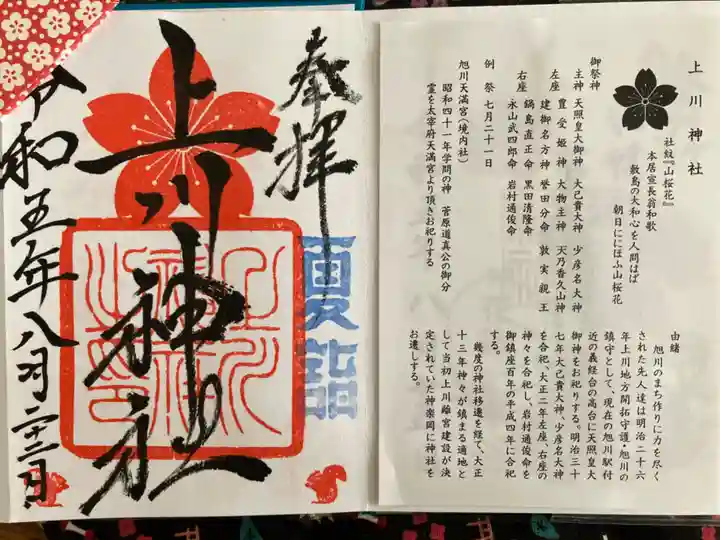 奉拝
上川神社
夏詣
令和五年八月二十二日
上川神社
社紋『山桜花』
本居宣長翁和歌
敷島の大和心を人問はば
朝日ににほふ山桜花
御祭神
主神 天照皇大御神 大己貴大神 少彦名大神
左座 豊受姫神 大物主神 天乃香久山神
建御名方神 誉田分命 敦実親王
右座 鍋島直正命 黒田清隆命
永山武四郎命 岩村通俊命
例祭 七月二十一日
旭川天満宮(境内社)
昭和四十一年学問の神 菅原道真公の御分
霊を太宰府天満宮より頂きお祀りする
由緒
旭川のまち作りに力を尽く
された先人達は明治二十六
年上川地方開拓守護・旭川の
鎮守として、現在の旭川駅付
近の義経台の高台に天照皇大
御神をお祀りする。明治三十
七年大己貴大神、少彦名大神
を合祀、大正二年左座、右座の
神々を合祀し、岩村通俊命を
御鎮座百年の平成四年に合祀
する。
幾度の神社移遷を経て、大正
十三年神々が鎮まる適地と
して当初上川離宮建設が決
定されていた神楽岡に神社を
お遷しする。